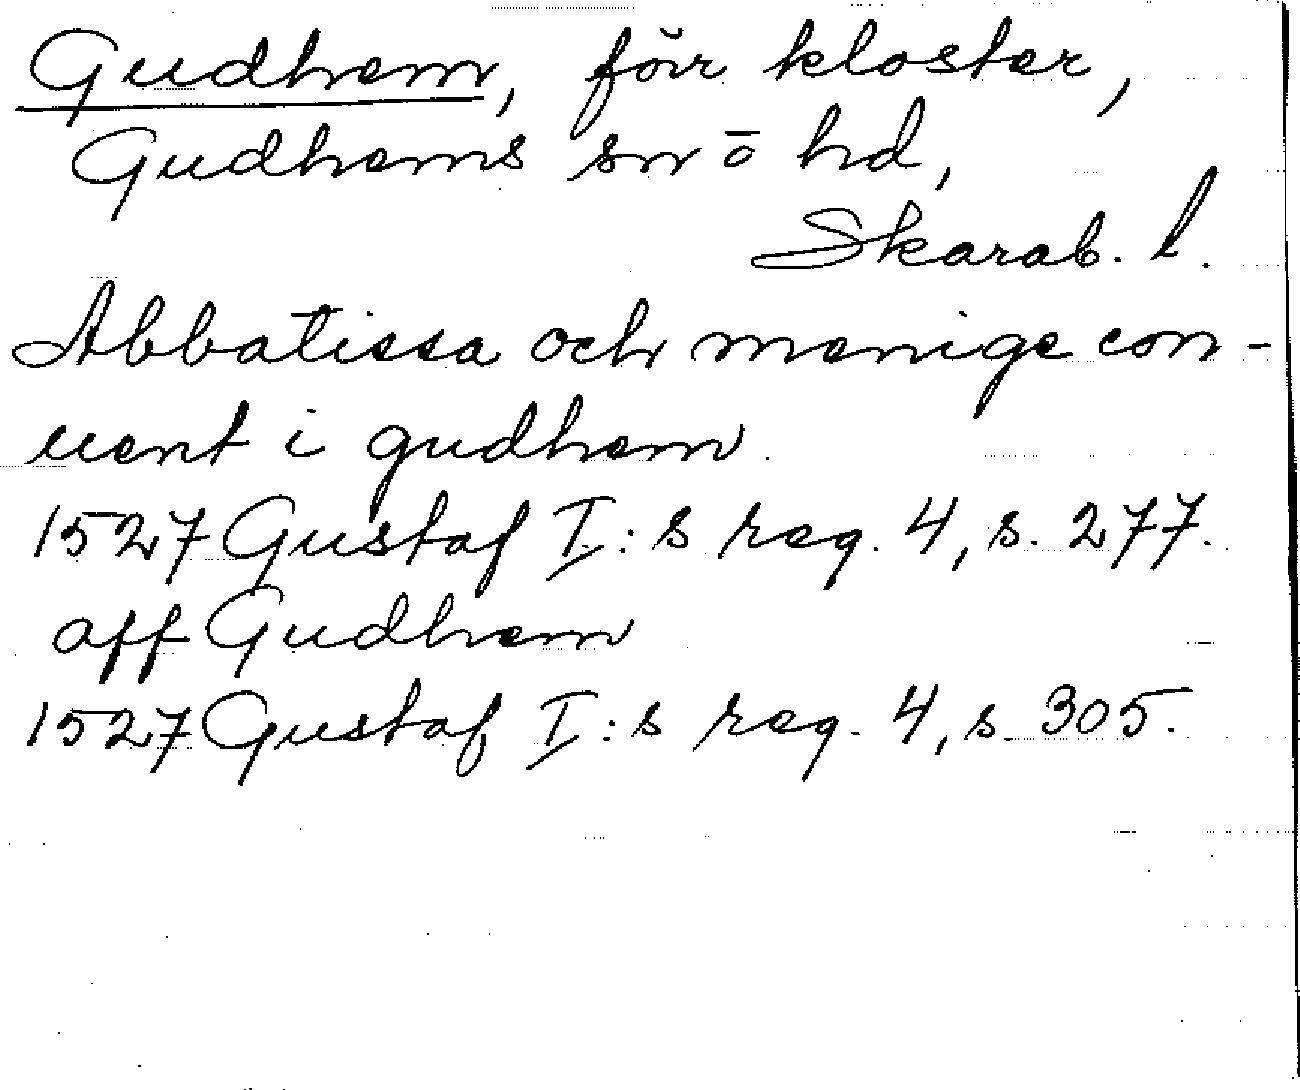 Gudhem, förr kloster,
Gudhems sn o hd,
Skarab. l.
Abbatissa och menige con-
uent i gudhem
1527 Gustaf I:s reg. 4, s. 277.
aff Gudhem
1527 Gustaf I:s reg. 4, s. 305.